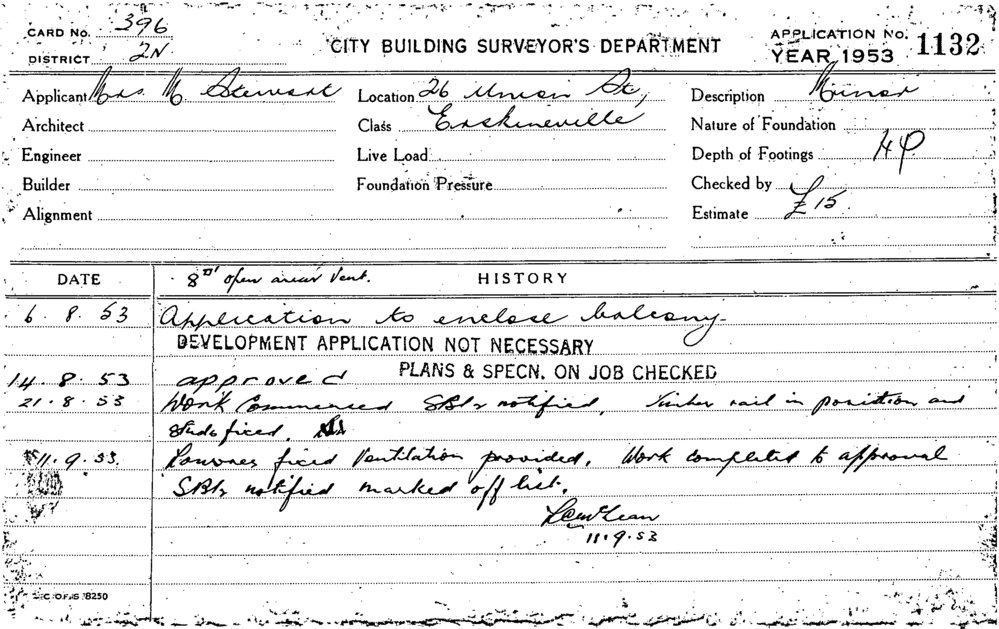 CARD No. 396
DISTRICT 2N
CITY BUILDING SURVEYOR'S DEPARTMENT
APPLICATION No. 1132
YEAR 1953
Applicant Mrs. M. Stewart
Location 26 Union St,
Description Minor
Architect
Class Erskineville
Nature of Foundation
Engineer
Live Load
Depth of Footings
Builder
Foundation Pressure
Checked by
Alignment
Estimate £15
DATE 8□' open area vent. HISTORY
6. 8. 53 Application to enclose balcony
DEVELOPMENT APPLICATION NOT NECESSARY
PLANS & SPECN. ON JOB CHECKED
14. 8. 53 approved
21. 8. 53 Work Commenced notified. Timber rail in position and
studs fixed.
11. 9. 53. Louvres fixed Ventilation provided. Work completed to approval
notified marked off list.
11. 9. 53
8250